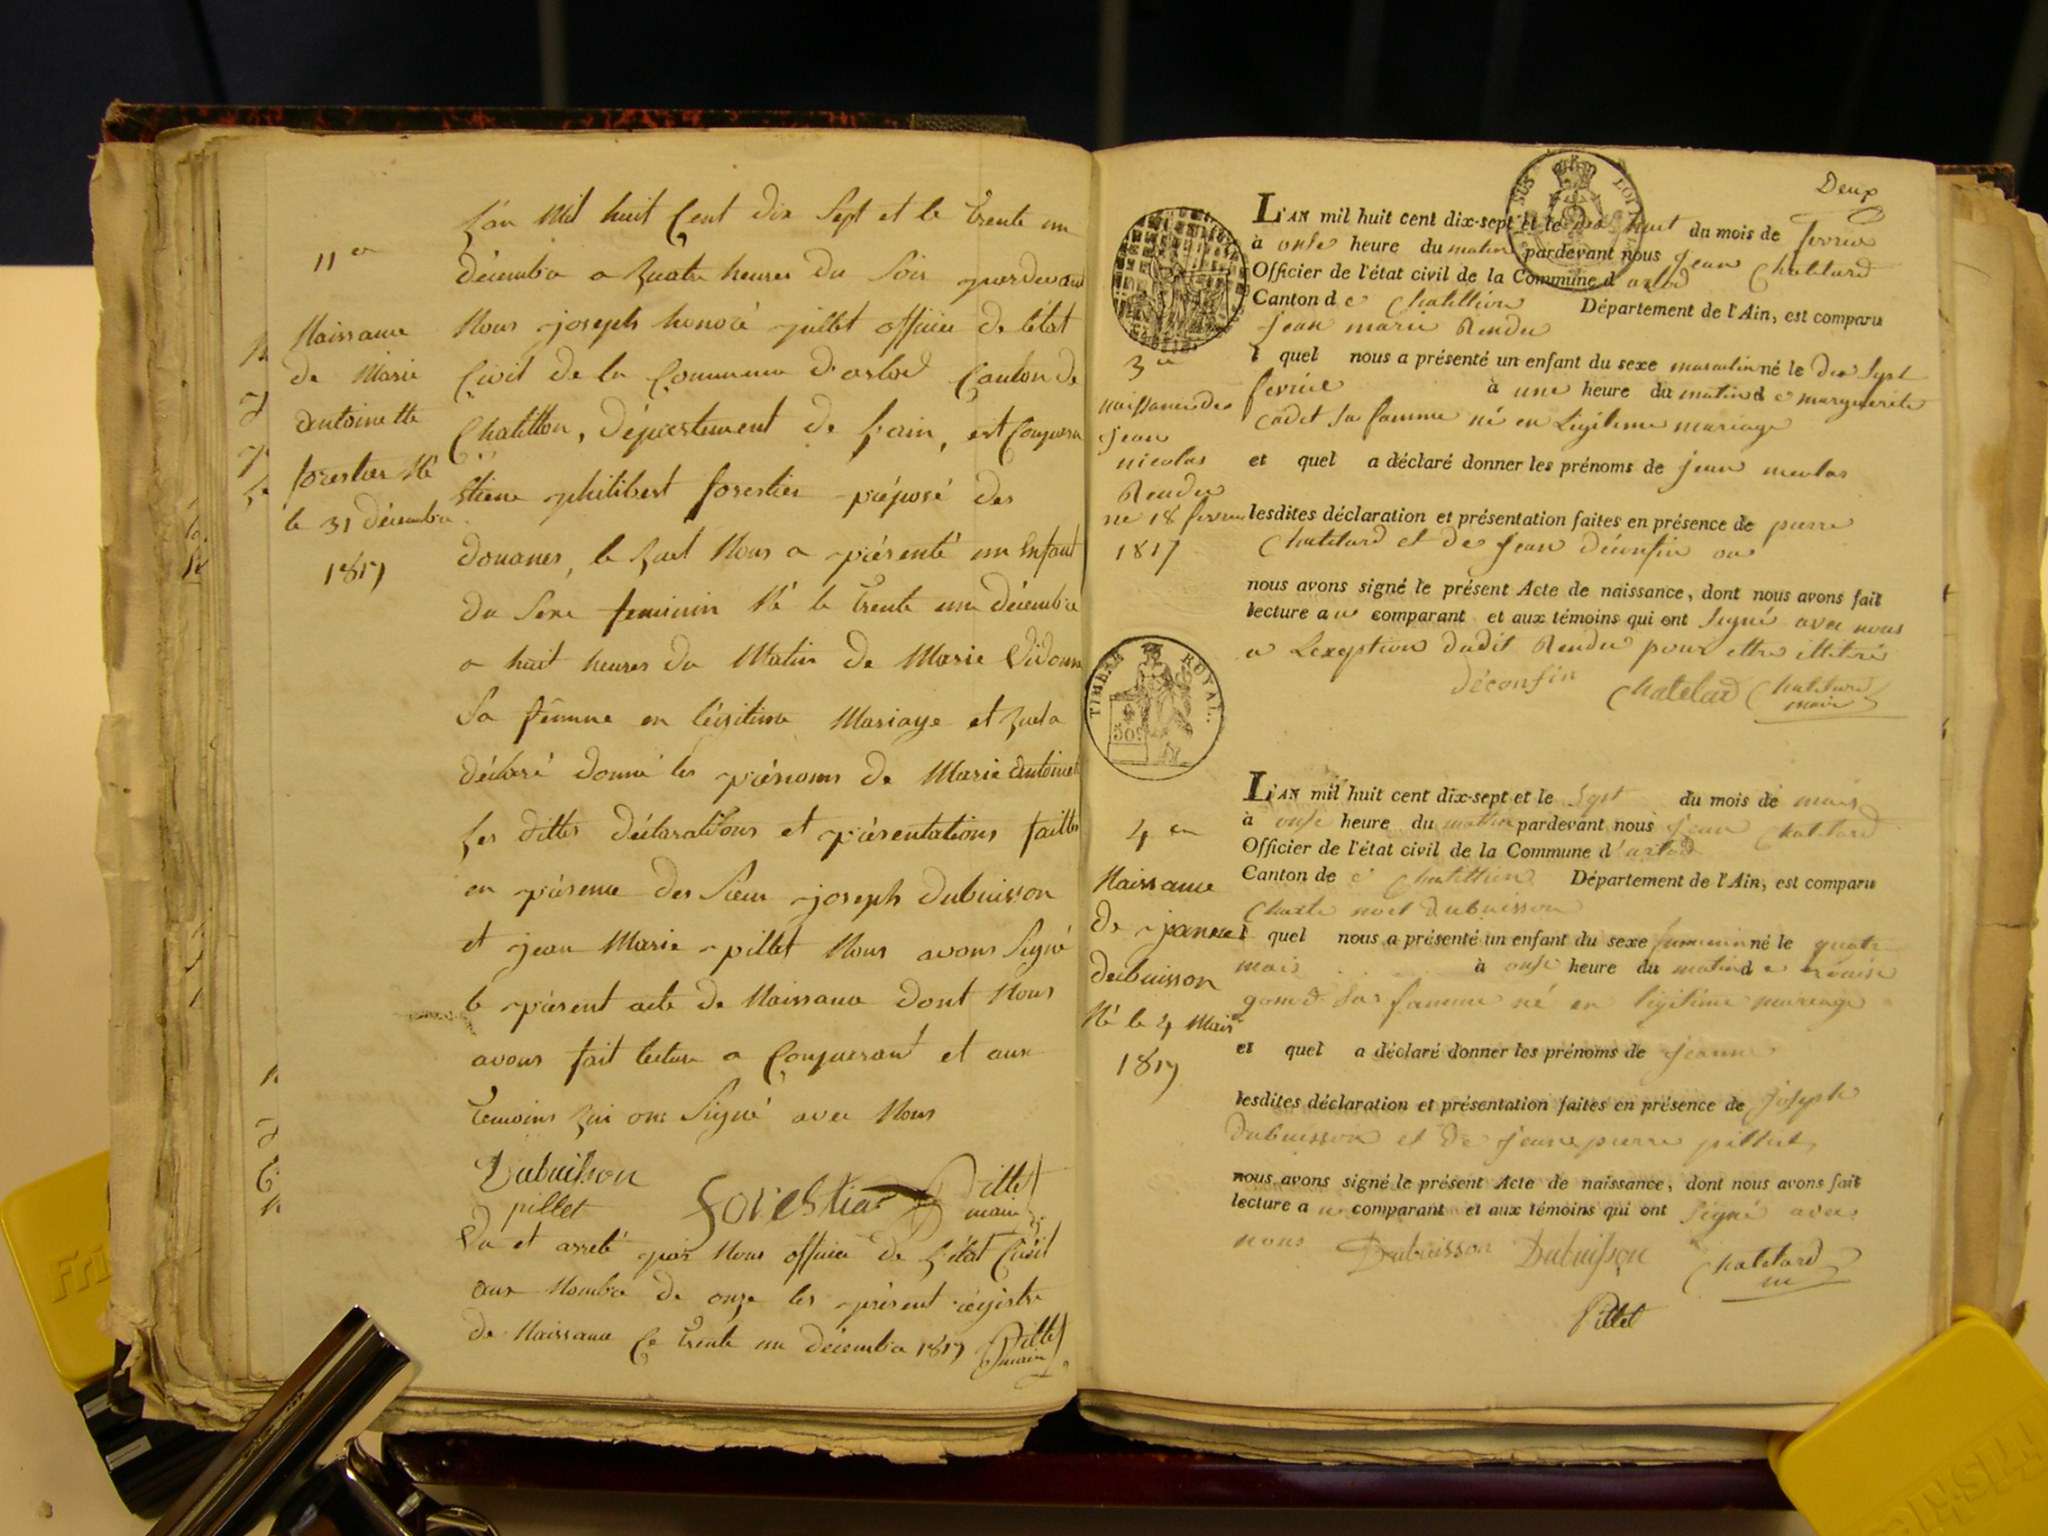 11e
Naissance
de Marie
antoinette
forestier Né
le 31 décembre
1817
L'an Mil huit Cent dix Sept et le trente un
décembre a quatre heures du Soir pardevant
Nous joseph honoré pillet officier de l'état
Civil de la Commune d'arlod Canton de
Chatillon, département de l'ain, est Comparu
étiene philibert forestier préposé des
douanes, le quel Nous a présenté un Enfant
du Sexe feminin Né le trente un décembre
a huit heures du Matin de Marie
Sa fémme en légitime Mariage et quel a
déclaré donné les prénoms de Marie antoinette
les dittes déclarations et présentations faittes
en présence des Sieur joseph dubuisson
et jean Marie pillet Nous avons Signé
le présent acte de Naissance dont Nous
avons fait lecture a Comparant et aux
temoins qui ont Signé avec Nous
Dubuisson
pillet Forestier Pillet
maire
Vu et arreté par Nous officier de L'état Civil
aux Nombre de onze les présent régistre
de Naissance Ce trente un décembre 1817 Pillet
maire
Deux
3e
naissance de
jean
nicolas
Rendu
né 18 fevrier
1817
L'AN mil huit cent dix-sept et le dix huit du mois de fevrier
à onse heure du matin pardevant nous jean Chatelard
Officier de l'état civil de la Commune d arlod
Canton d e Chatillion Département de l'Ain, est comparu
jean marie Rendu
l quel nous a présenté un enfant du sexe masculin né le dix sept
fevrier à une heure du matin d e marguerite
cadet sa famme né en Légitime mariage
et quel a déclaré donner les prénoms de jean nicolas
lesdites déclaration et présentation faites en présence de pierre
Chatelard et de jean déconfin
nous avons signé le présent Acte de naissance, dont nous avons fait
lecture au comparant et aux témoins qui ont signé avec nous
a Lexeption dudit Rendu pour ettre illitéré
déconfin Chatelard Chatelard
maire
TIMBRE ROYAL.
50c
4e
Naissance
de janne
dubuisson
Né le 4 Mars
1817
L'AN mil huit cent dix-sept et le sept du mois de mars
à onse heure du matin pardevant nous jean Chatelard
Officier de l'état civil de la Commune d'arlod
Canton de Chatillion Département de l'Ain, est comparu
Charle noel dubuisson
l quel nous a présenté un enfant du sexe feminin né le quatre
mars à onse heure du matin d e
sa famme né en légitime mariage
et quel a déclaré donner les prénoms de jeanne
lesdites déclaration et présentation faites en présence de joseph
dubuisson et de jean pierre pillet
nous avons signé le présent Acte de naissance, dont nous avons fait
lecture au comparant et aux témoins qui ont signé avec
nous Dubuisson Dubuisson Chatelard
m
Pillet